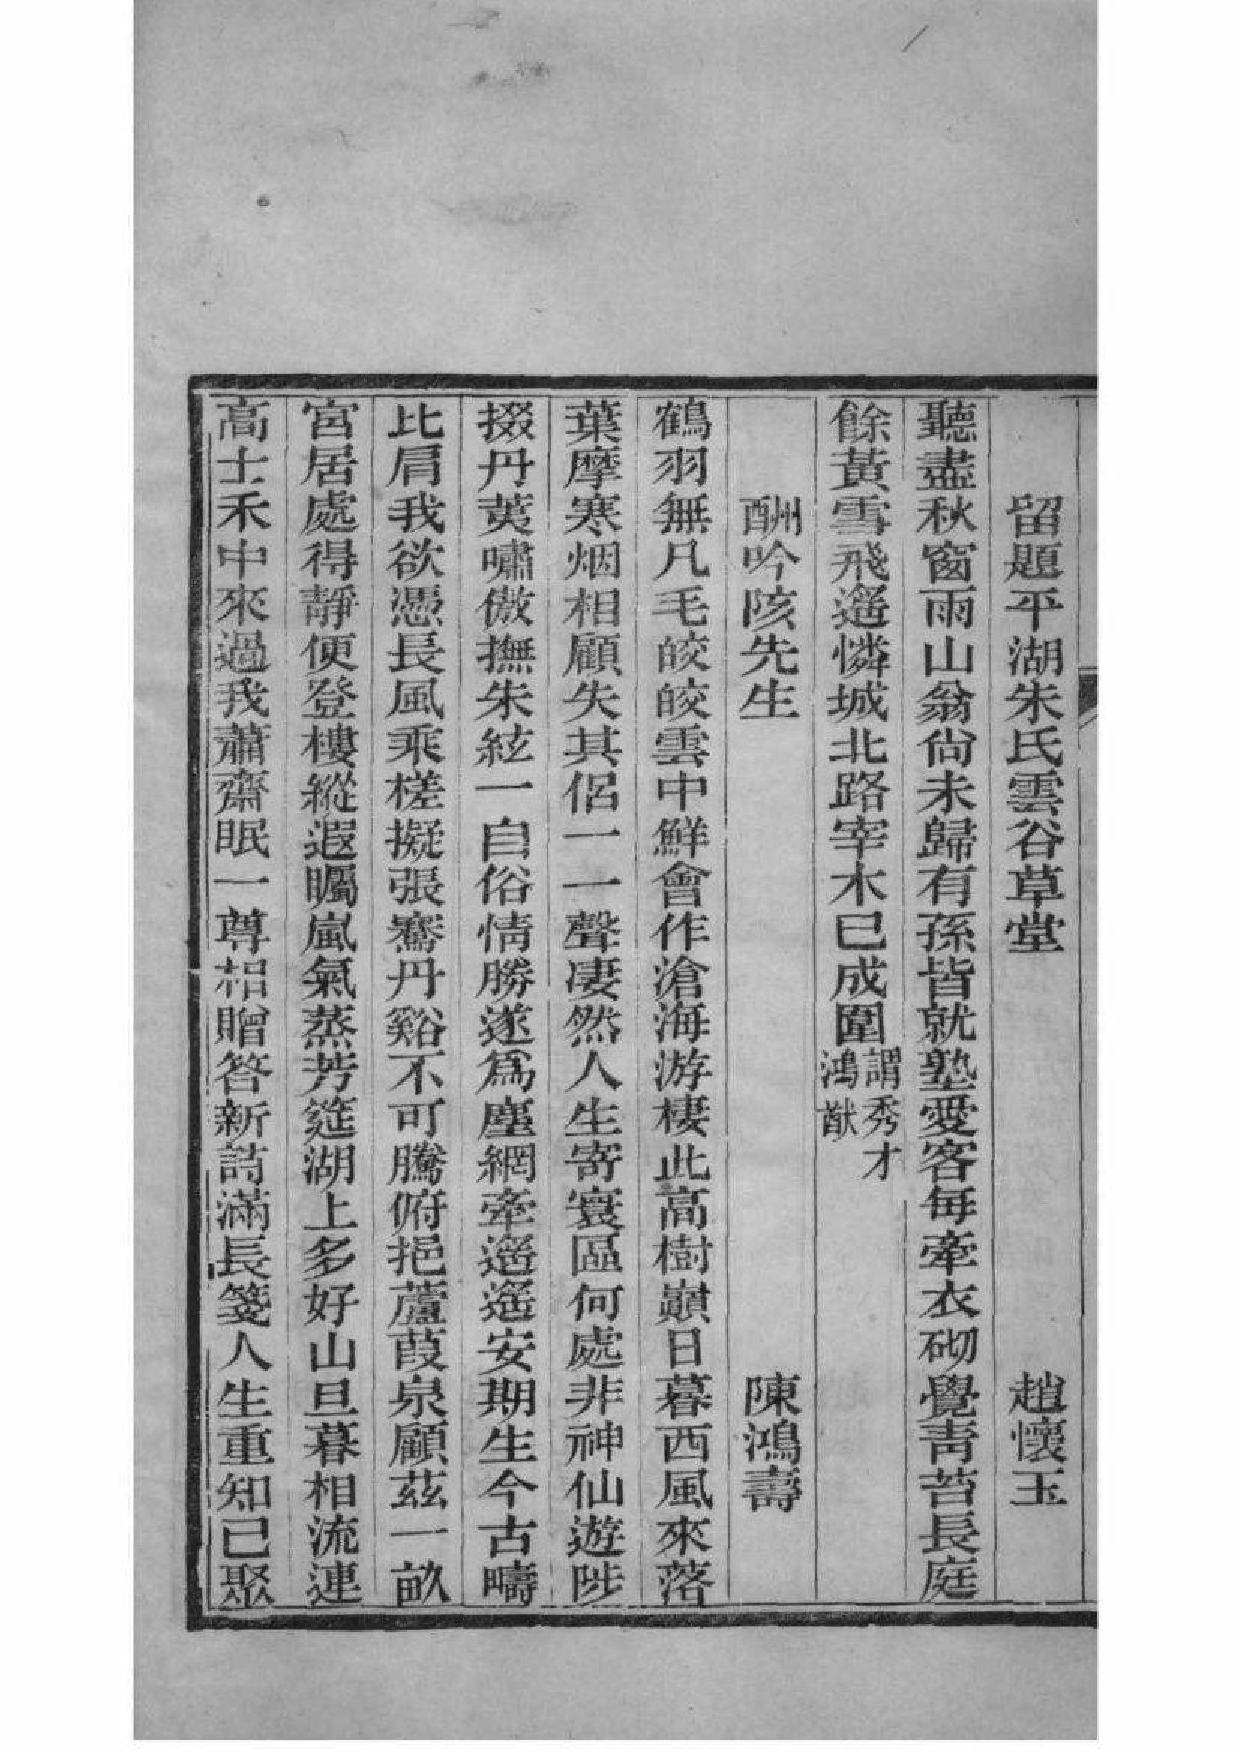 留題平湖朱氏雲谷草堂 趙懷玉
聽盡秋窗雨山翁尙未歸有孫皆就塾愛客每牽衣砌覺靑苔長庭
餘黃雪飛遥憐城北路宰木已成圍謂秀才鴻猷
酬吟陔先生 陳鴻壽
鶴羽無凡毛皎皎雲中鮮會作滄海游棲此高樹巔日暮西風來落
葉摩寒烟相顧失其侶一一聲凄然人生寄寰區何處非神仙遊陟
掇丹荑嘯傲撫朱絃一自俗情勝遂爲塵網牽遥遥安期生今古疇
比肩我欲憑長風乘槎擬張騫丹谿不可騰俯挹蘆葭泉顧茲一畝
宮居處得靜便登樓縱遐矚嵐氣蒸芳筵湖上多好山旦暮相流連
高士禾中來過我蕭齋眠一尊相贈答新詩滿長箋人生重知己聚